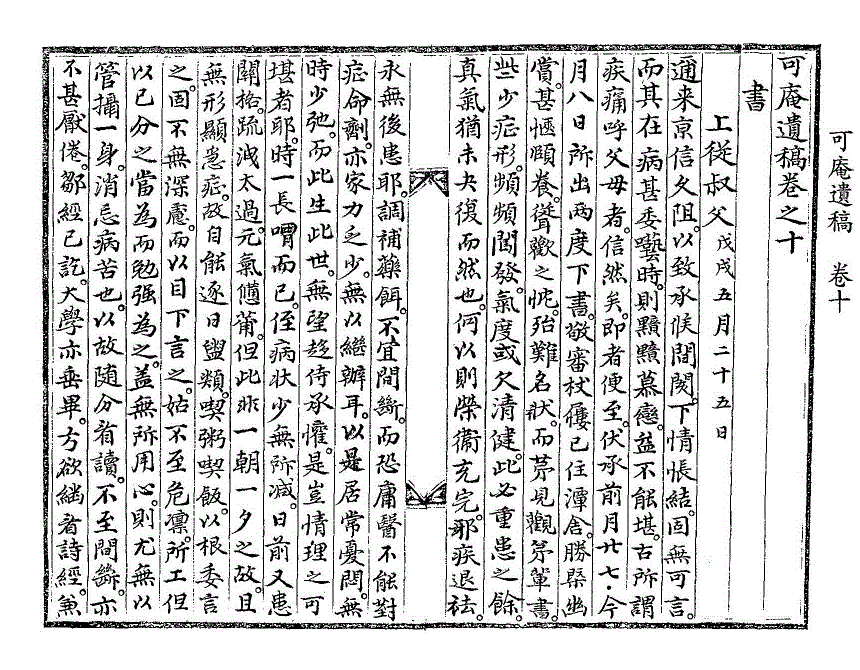 可庵遺稿 卷十
可庵遺稿卷之十
書
上從叔父 戊戌五月二十五日
邇來京信久阻。以致承候闊闕。下情悵結。固無可言。
而其在病甚委囈時。則黯黯慕戀。益不能堪。古所謂
疾痛呼父母者。信然矣。即者便至。伏承前月廿七。今
月八日所出兩度下書。敬審杖屨已住潭舍。勝槩幽
賞。甚愜頤養。聳歡之忱。殆難名狀。而第見觀第輩書。
些少症形。頻頻闖發。氣度或欠清健。此必重患之餘。
真氣猶未夬復而然也。何以則榮衛充完。邪疾退祛。
永無後患耶。調補藥餌。不宜間斷。而恐庸醫不能對
症命劑。亦家力乏少。無以繼辦耳。以是居常憂悶。無
時少弛。而此生此世。無望趍侍承懽。是豈情理之可
堪者耶。時一長喟而已。侄病狀少無所减。日前又患
關格疏洩太過。元氣憊薾。但此非一朝一夕之故。且
無形顯惡症。故自能逐日盥頮。喫粥喫飯。以根委言
之。固不無深慮。而以目下言之。姑不至危凛。所工但
以己分之當為而勉强為之。盖無所用心。則尤無以
管攝一身。消忘病苦也。以故隨分看讀。不至間斷。亦
不甚厭倦。鄒經已訖。大學亦垂畢。方欲繙看詩經。兼